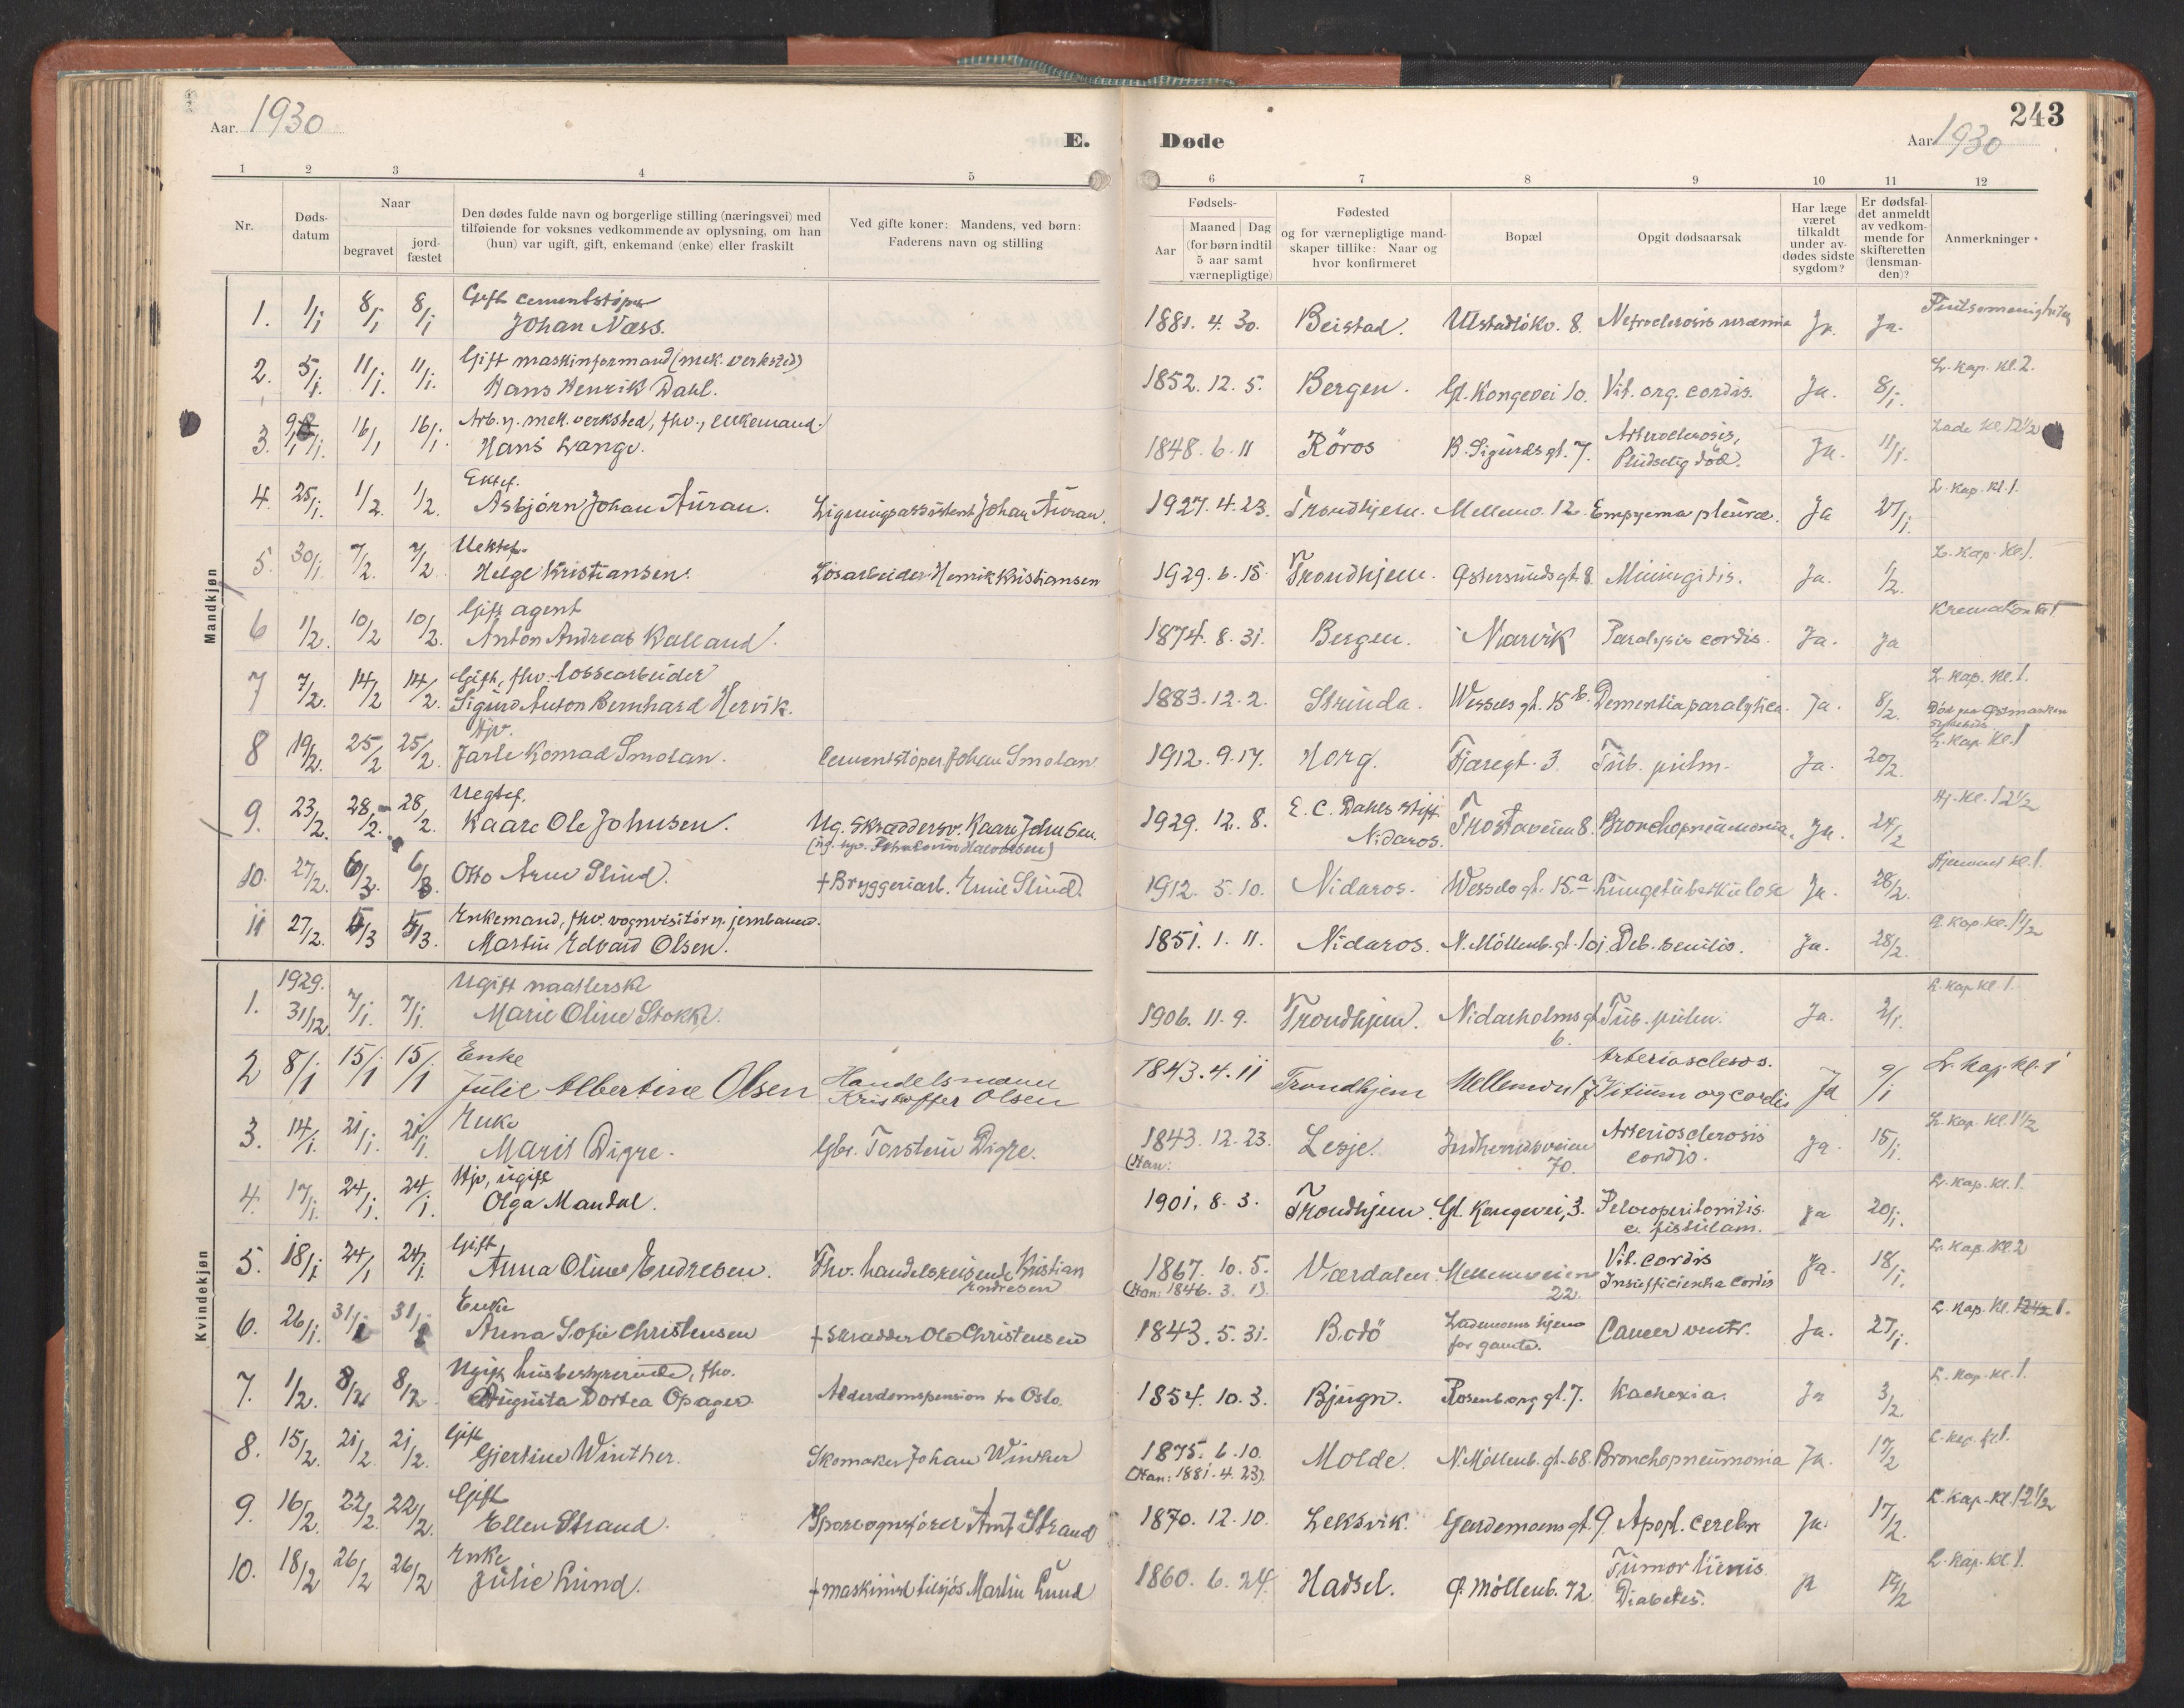 243
Aar. 1930
E. Døde
Aar 1930
1 2 3 4 5 6 7 8 9 10 11 12
Nr.
Døds-
datum
Naar
begravet
jord-
fæstet
Den dødes fulde navn og borgerlige stilling (næringsvei) med
tilføiende for voksnes vedkommende av oplysning, om han
(hun) var ugift, gift, enkemand (enke) eller fraskilt
Ved gifte koner: Mandens, ved børn:
Faderens navn og stilling
Fødsels-
Aar
Maaned Dag
(for børn indtil
5 aar samt
værnepligtige)
Fødested
og for værnepligtige mand-
skaper tillike: Naar og
hvor konfirmeret
Bopæl
Opgit dødsaarsak
Har læge
været
tilkaldt
under av-
dødes sidste
sygdom?
Er dødsfal-
det anmeldt
av vedkom-
mende for
skifteretten
(lensman-
den)?
Anmerkninger
Mandkjøn
Gift cementstøper
1. 1/1 8/1 8/1 Johan Næss. 1881. 4. 30. Beistad. Ulstadløkv. 8. Ja. Ja.
Gift maskinformand (mek. verksted) L. kap. kl. 2.
2. 5/1. 11/1. 11/1. Hans Henrik Dahl. 1852. 12. 5. Bergen. Gl. Kongevei 10. Vit. org. cordis. Ja. 8/1.
Arb. v. mek. verksted, fhv., enkemand. Lade kl. 12 1/2
3. 9/1 16/1 16/1 Hans Lange. 1848. 6. 11 Röros B. Sigurds gt. 7. Arteroclerosis, Pludselig död. Ja. 11/1.
Ektef. L. kap. kl. 1.
4. 25/1. 1/2. 1/2. Asbjørn Johan Auran. Ligningsassistent Johan Auran. 1927. 4. 23. Trondhjem. Mellemv. 12. Empyema pleuræ. Ja 27/1.
Uektef. L. kap. kl. 1.
5. 30/1. 7/2. 7/2 Helge Kristiansen. Løsarbeider Henrik Kristiansen 1929. 6. 18 Trondhjem. Østersunds gt. 8. Meningitis. Ja. 1/2.
Gift agent
6 1/2. 10/2 10/2. Anton Andreas Kalland. 1874. 8. 31. Bergen. Narvik Paralysis cordis. Ja. Ja
Gift, fhv. lossearbeider L. kap. kl. 1.
7 7/2. 14/2 14/2. Sigurd Anton Bernhard Hervik. 1883. 12. 2. Strinda. Wessels gt. 15 b. Dementia paralytica. Ja. 8/2. Død paa Østmarken sykehus
Hjv. L. kap. kl. 1
8 19/2. 25/2 25/2. Jarle Konrad Smolan. Cementstøper Johan Smolan 1912. 9. 17. Horg. Fjæregt. 3 Tub. pulm. Ja. 20/2.
Uegtef. Hj. kl. 12 1/2
9. 23/2. 28/2. 28/2. Kaare Ole Johnsen. Ug. skræddersv. Kaare Johnsen. 1929. 12. 8. E. C. Dahls stift. Nidaros. Frostaveien 8. Bronchopneumonia. Ja. 24/2
Hjemmet kl. 1.
10. 27/2. 6/3. 6/3 Otto Arne Slind. + Bryggeriarb. Emil Slind. 1912. 5. 10. Nidaros. Wessels gt. 15. a Lungetuberkulose Ja. 28/2.
Enkemand, fhv. vognvisitör v. jernbanen.
11 27/2. 5/3 5/3. Martin Edvard Olsen. 1851. 1. 11. Nidaros. N. Möllenb. gt. 101 Deb. senilis. Ja. 28/2.
Kvindekjøn
1929. Ugift naatlerske L. kap. kl. 1.
1. 31/12. 7/1. 7/1. Marie Oline Stokke. 1906. 11. 9. Trondhjem. Nidarholms gt. 6. Tub. pulm. Ja. 2/1.
Enke
2 8/1 15/1 15/1 Julie Albertine Olsen Handelsmann Kristoffer Olsen 1843. 4. 11 Trondhjem Arterioscleros. Vitium org cordis Ja 9/1 L. kap. kl. 1
Enke L. kap. kl. 1 1/2
3. 14/1. 21/1. 21/1. Marit Digre. Gbr. Torstein Digre. 1843. 12. 23. (Han: Lesje. Indherredsveien 70. Arteriosclerosis cordis. Ja. 15/1.
Hjv, ugift L. kap. kl. 1.
4. 17/1. 24/1. 24/1. Olga Mandal. 1901. 8. 3. Trondhjem. Gl. Kongevei, 3. Pelveoperitonitis. e. fistulam. Ja 20/1.
Gift L. kap. kl. 2
5. 18/1 24/1 24/1. Anna Oline Endresen. Fhv. handelsreisende Kristian Endresen 1867. 10. 5. (Han: 1846. 3. 1). Værdalen. Mellemveien 22. Vit. cordis Insufficientia cordis Ja. 18/1.
Enke
6. 26/1. 31/1 31/1 Anna Sofie Christensen + Skrædder Ole Christensen 1843. 5. 31. Bodö Lademoens hjem for gamle. Cancer ventr. Ja. 27/1. L. kap. kl. 12 1/2 1.
Ugift husbestyrerinde, fhv. L. kap. kl. 1.
7. 1/2. 8/2 8/2 Augusta Dortea Opager Alderdomspension fra Oslo. 1854. 10. 3. Bjugn. Rosenborg gt. 7. Kachexia. Ja 3/2
Gift L. kap. kl. 1.
8. 15/2. 21/2. 21/2. Gjertine Winther. Skomaker Johan Winther 1875. 6. 10. (Han: 1881. 4. 23). Molde. N. Möllenb. gt. 68. Bronchopneumonia Ja. 17/2
Gift L. kap. kl. 12 1/2
9. 16/2. 22/2. 22/2. Ellen Strand. Sporvognsfører Arnt Strand 1870. 12. 10. Leksvik. Gardemoens gt. 9. Apopl. cerebri Ja. 17/2.
Enke L. kap. kl. 1.
10. 18/2 26/2 26/2 Julie Lund. + maskinist tilsjös Martin Lund 1860. 6. 24. Hadsel. Ø. Möllenb. 72. Tumor lienis. Diabetes. Ja 19/2